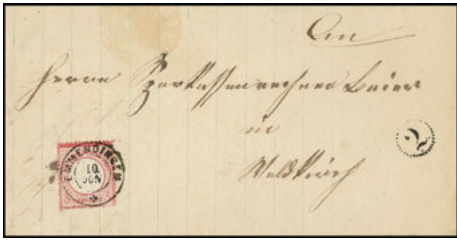 An
Herrn Sparkassenrechner Baier
in
Waldkirch
2
EMMENDINGEN
10
NOV